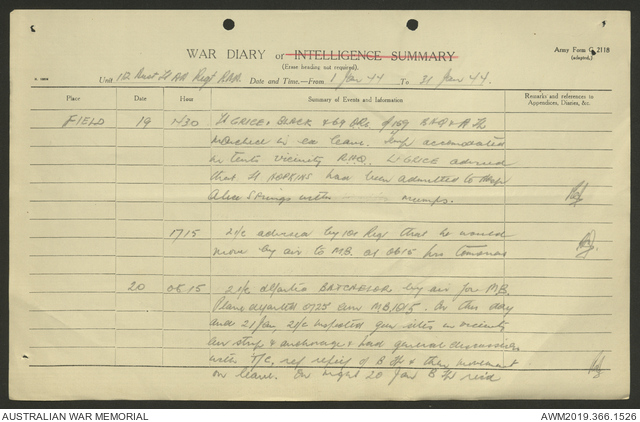 WAR DIARY of INTELLIGENCE SUMMARY
Army Form C. 2118
(adapted.)
(Erase heading not required).
Unit 12 Aust Lt AA Regt RAA. Date and Time.—From 1 Jan 44 To 31 Jan 44.
Place Date Hour Summary of Events and Information Remarks and references to
Appendices, Diaries, &c.
FIELD 19 Lt GRICE & BLACK & 69 ORs of 169 &
ex leave. Temp accomodated
in tents vicinity RHQ. Lt GRICE advised
that Lt HOPKINS had been admitted to Hosp
Alice Springs with mumps.
1715 2i/c advised by Regt that he would
move by air to MB at 0615 hrs tomorrow
20 0615 2i/c departed BATCHELOR by air for MB.
Plane departed 0725 arr MB 1015. On this day
and 21 Jan, 2i/c inspected gun sites in vicinity
air strip & anchorage & had general discussions
with T/C, ref of B Tp & their movement
on leave. On night 20 Jan B Tp
AUSTRALIAN WAR MEMORIAL
AWM2019.366.1526